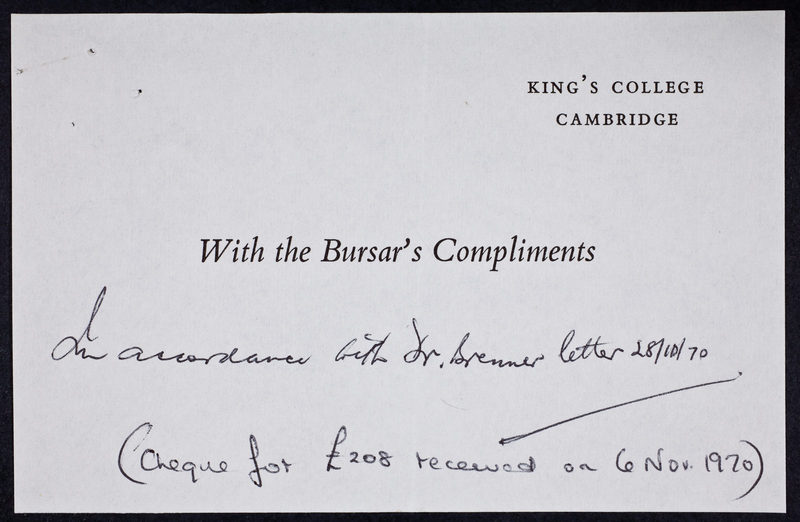 KING'S COLLEGE
CAMBRIDGE
With the Bursar's Compliments
In accordance with Dr. Brenner letter 28/10/70
(Cheque for £208 received on 6 Nov. 1970)